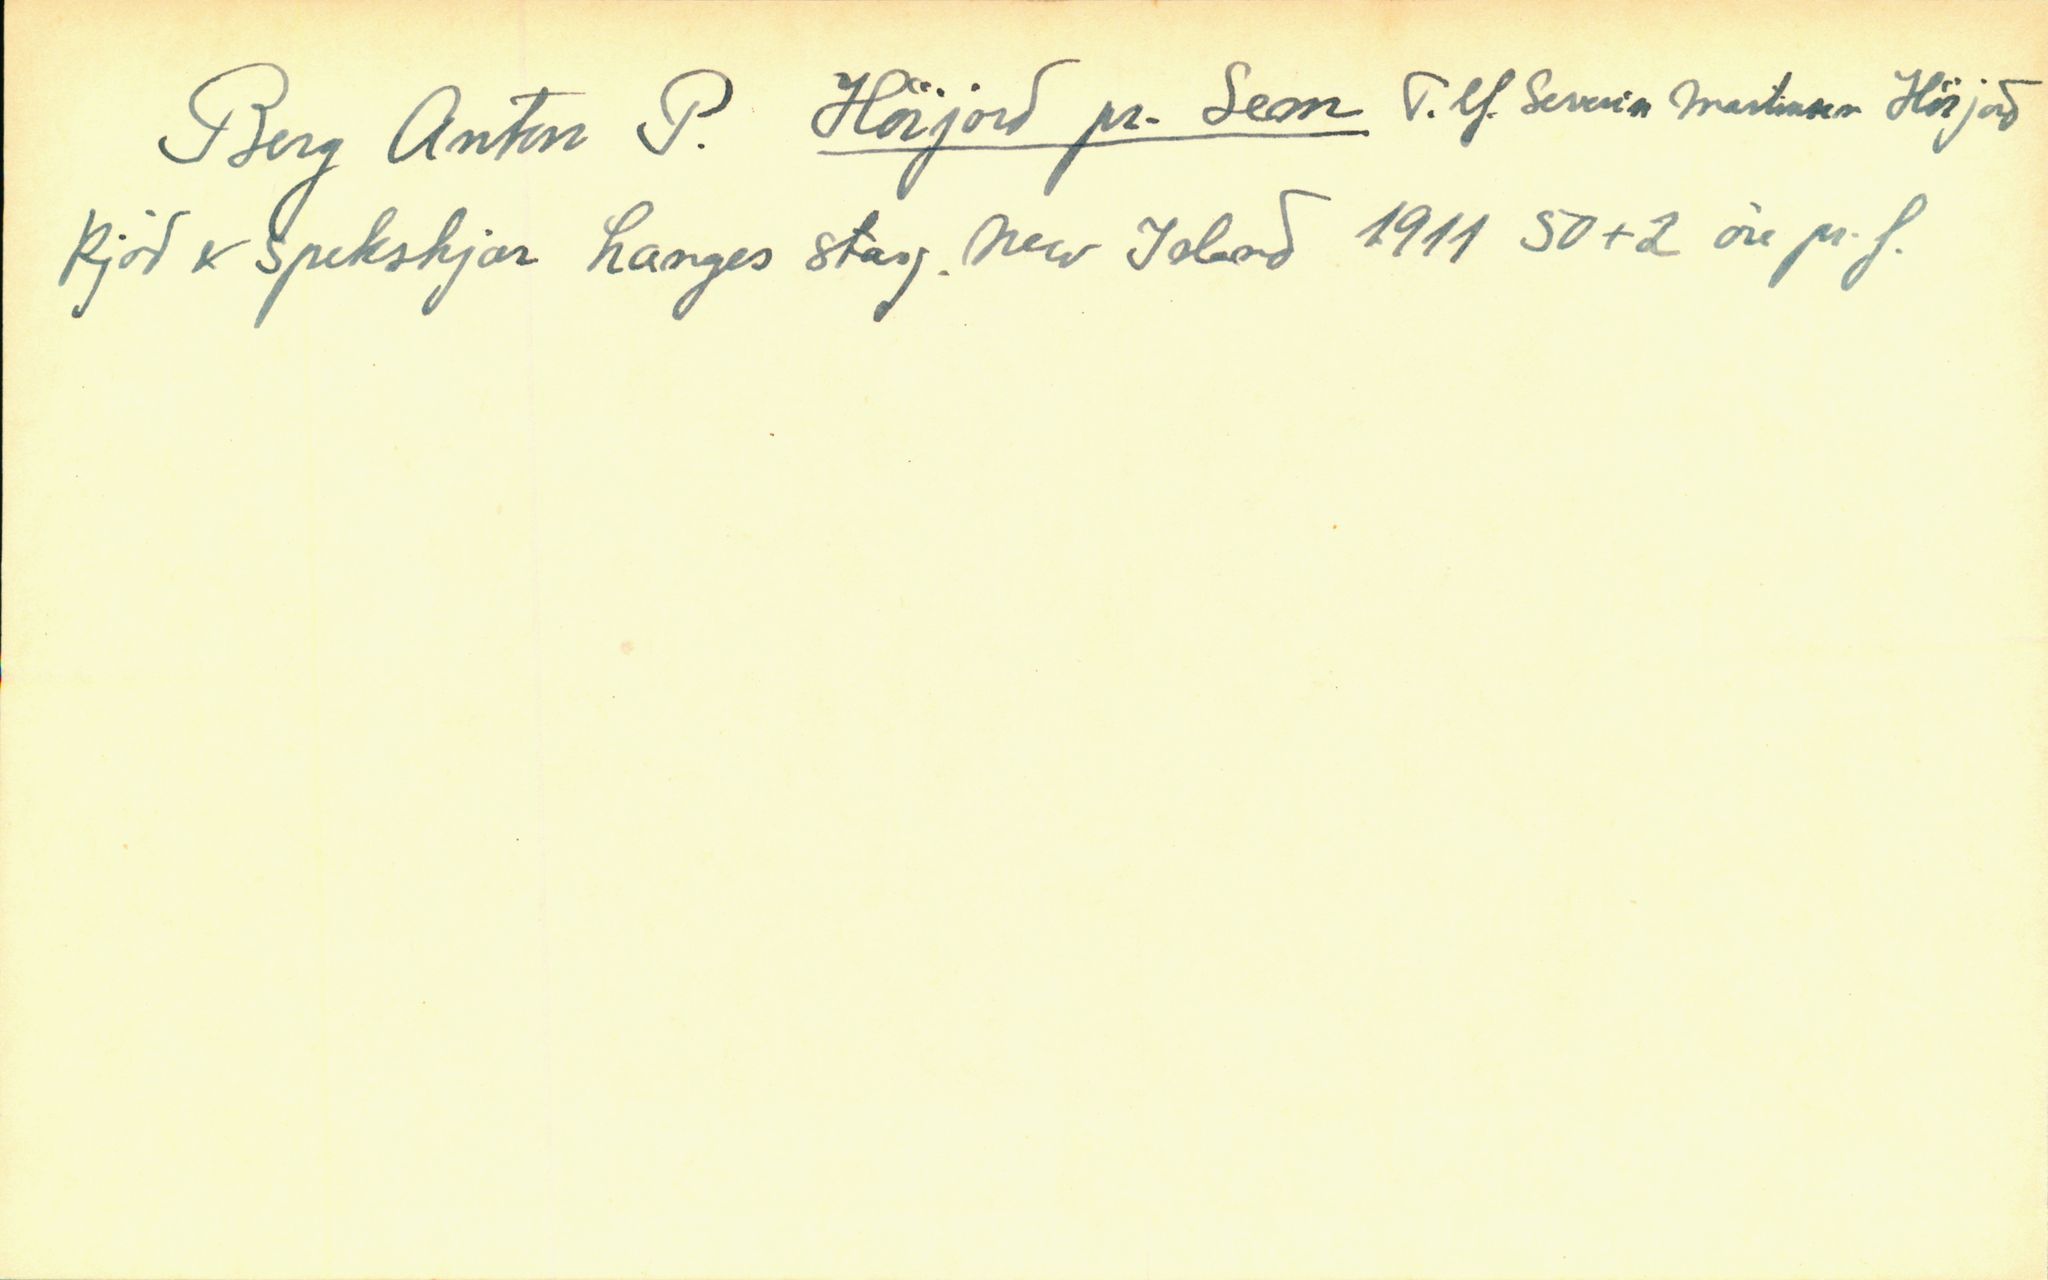 Berg Anton P. Höijord pr. Sem T. lf. Severin Martinsen Höijord
kjöd & spekskjær Langes stasj. New Island 1911 50+2 öre pr. f.